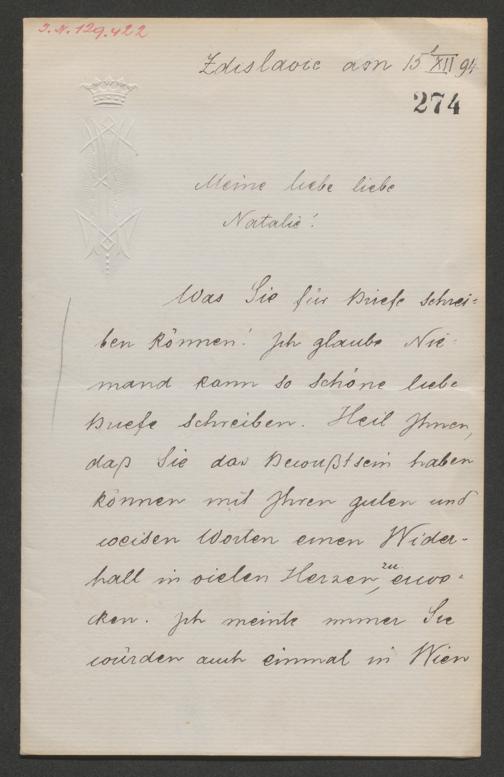 J.N. 129.422
Zdislavic am 15/XII 94
274
Meine liebe liebe
Natalie!
Was Sie für Briefe schrei=
ben können! Ich glaube Nie=
mand kann so schöne liebe
Briefe schreiben. Heil Ihnen,
daß Sie das Bewußtsein haben
können mit Ihren guten und
weisen Worten einen Wider=
hall in vielen Herzen, zu erwe=
cken. Ich meinte immer Sie
würden auch einmal in Wien